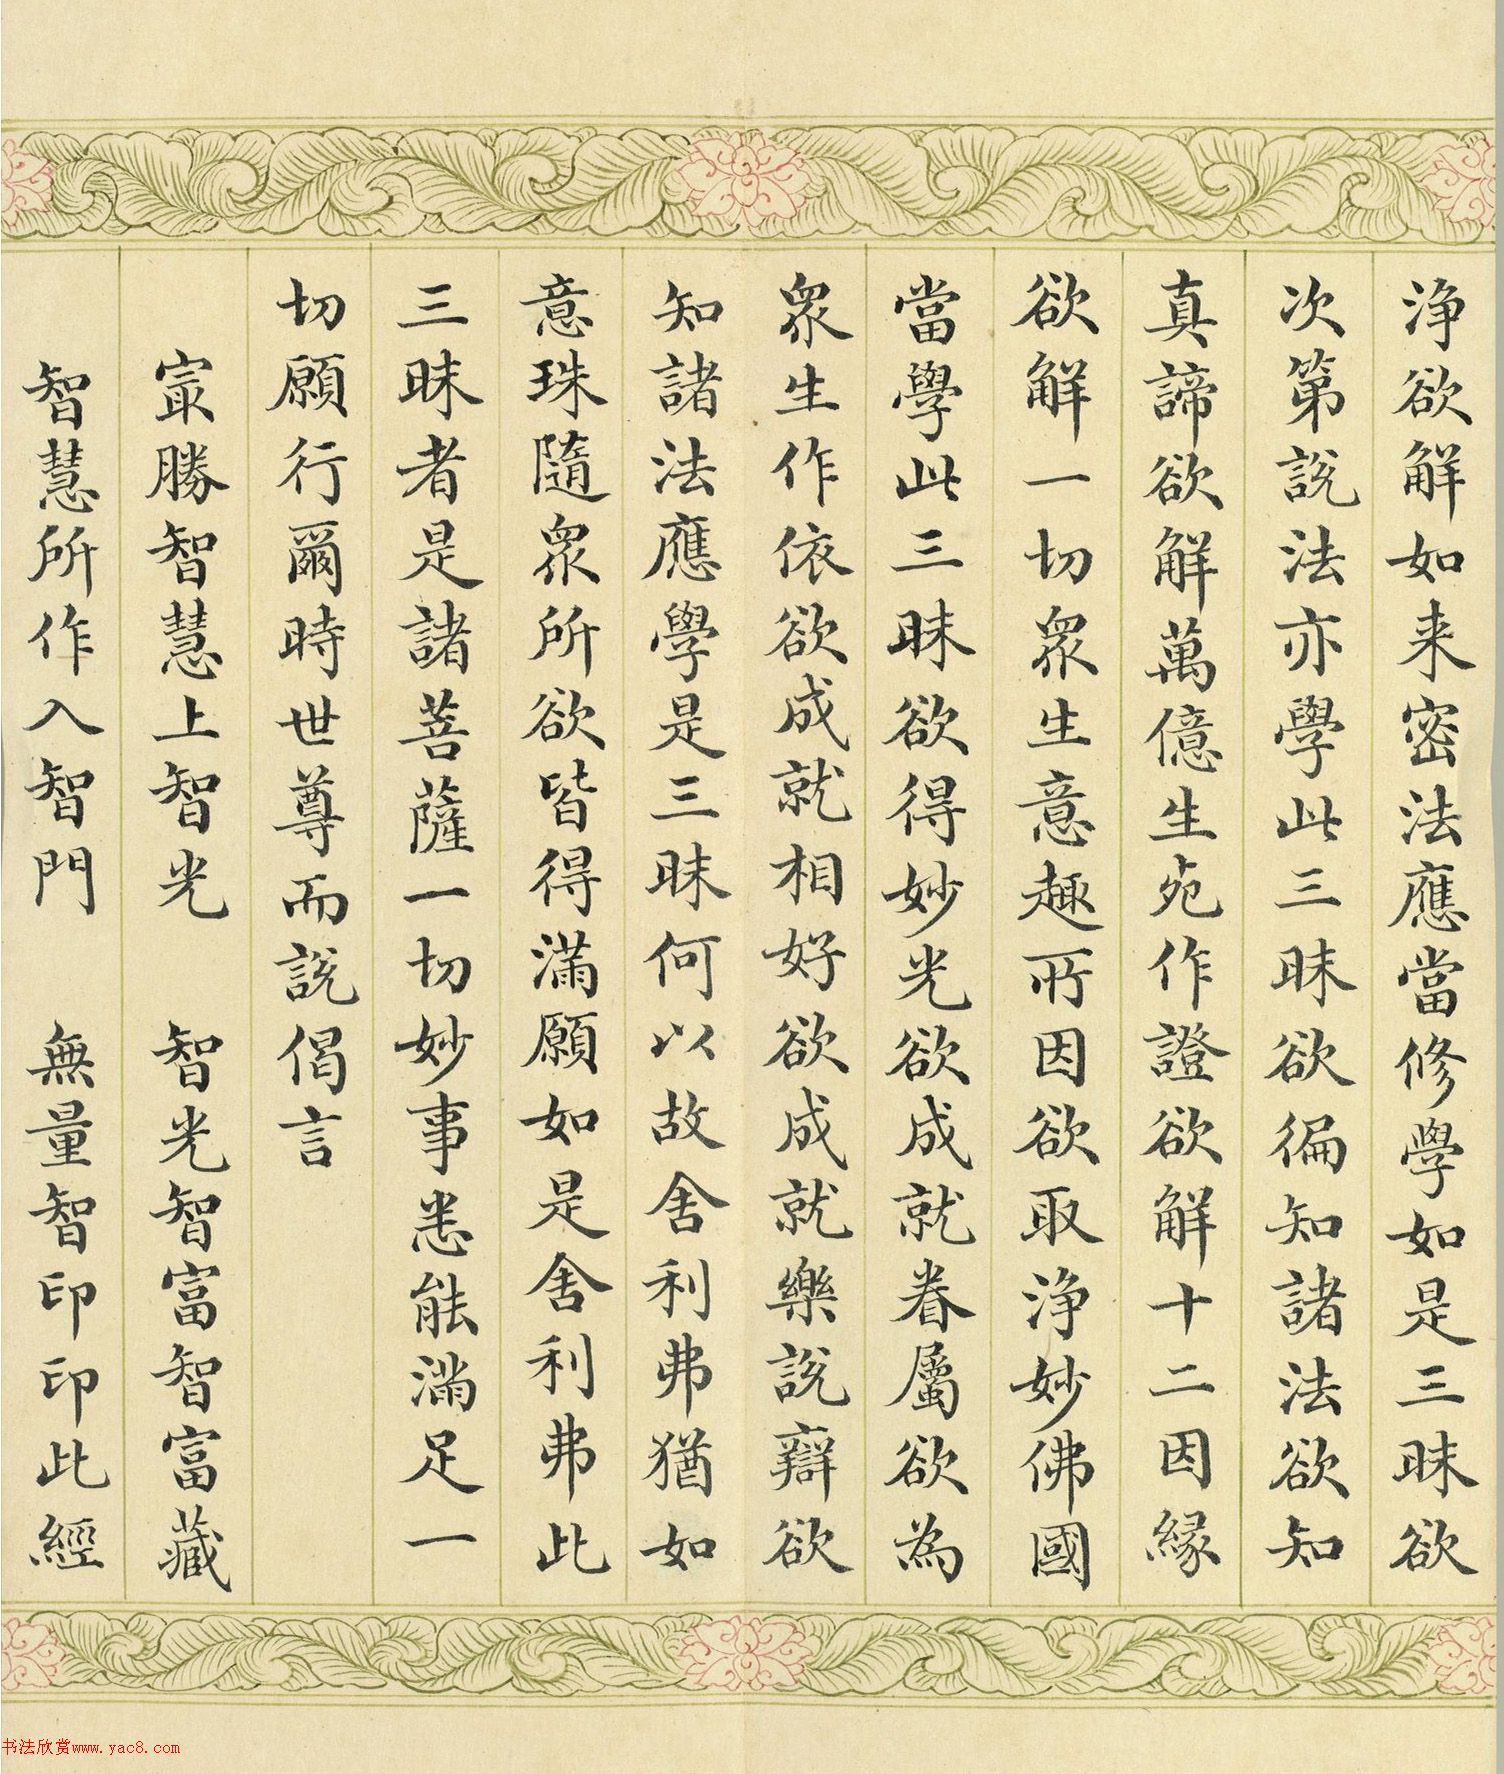 淨欲解如来密法應當修學如是三昧欲
次第說法亦學此三昧欲徧知諸法欲知
真諦欲解萬億生死作證欲解十二因緣
欲解一切眾生意趣所因欲取淨妙佛國
當學此三昧欲得妙光欲成就眷屬欲為
眾生作依欲成就相好欲成就樂說辯欲
知諸法應學是三昧何以故舍利弗猶如
意珠隨眾所欲皆得滿願如是舍利弗此
三昧者是諸菩薩一切妙事悉能滿足一
切願行爾時世尊而說偈言
㝡勝智慧上智光　智光智富智富藏
智慧所作入智門　無量智印印此經
书法欣赏www.yac8.com